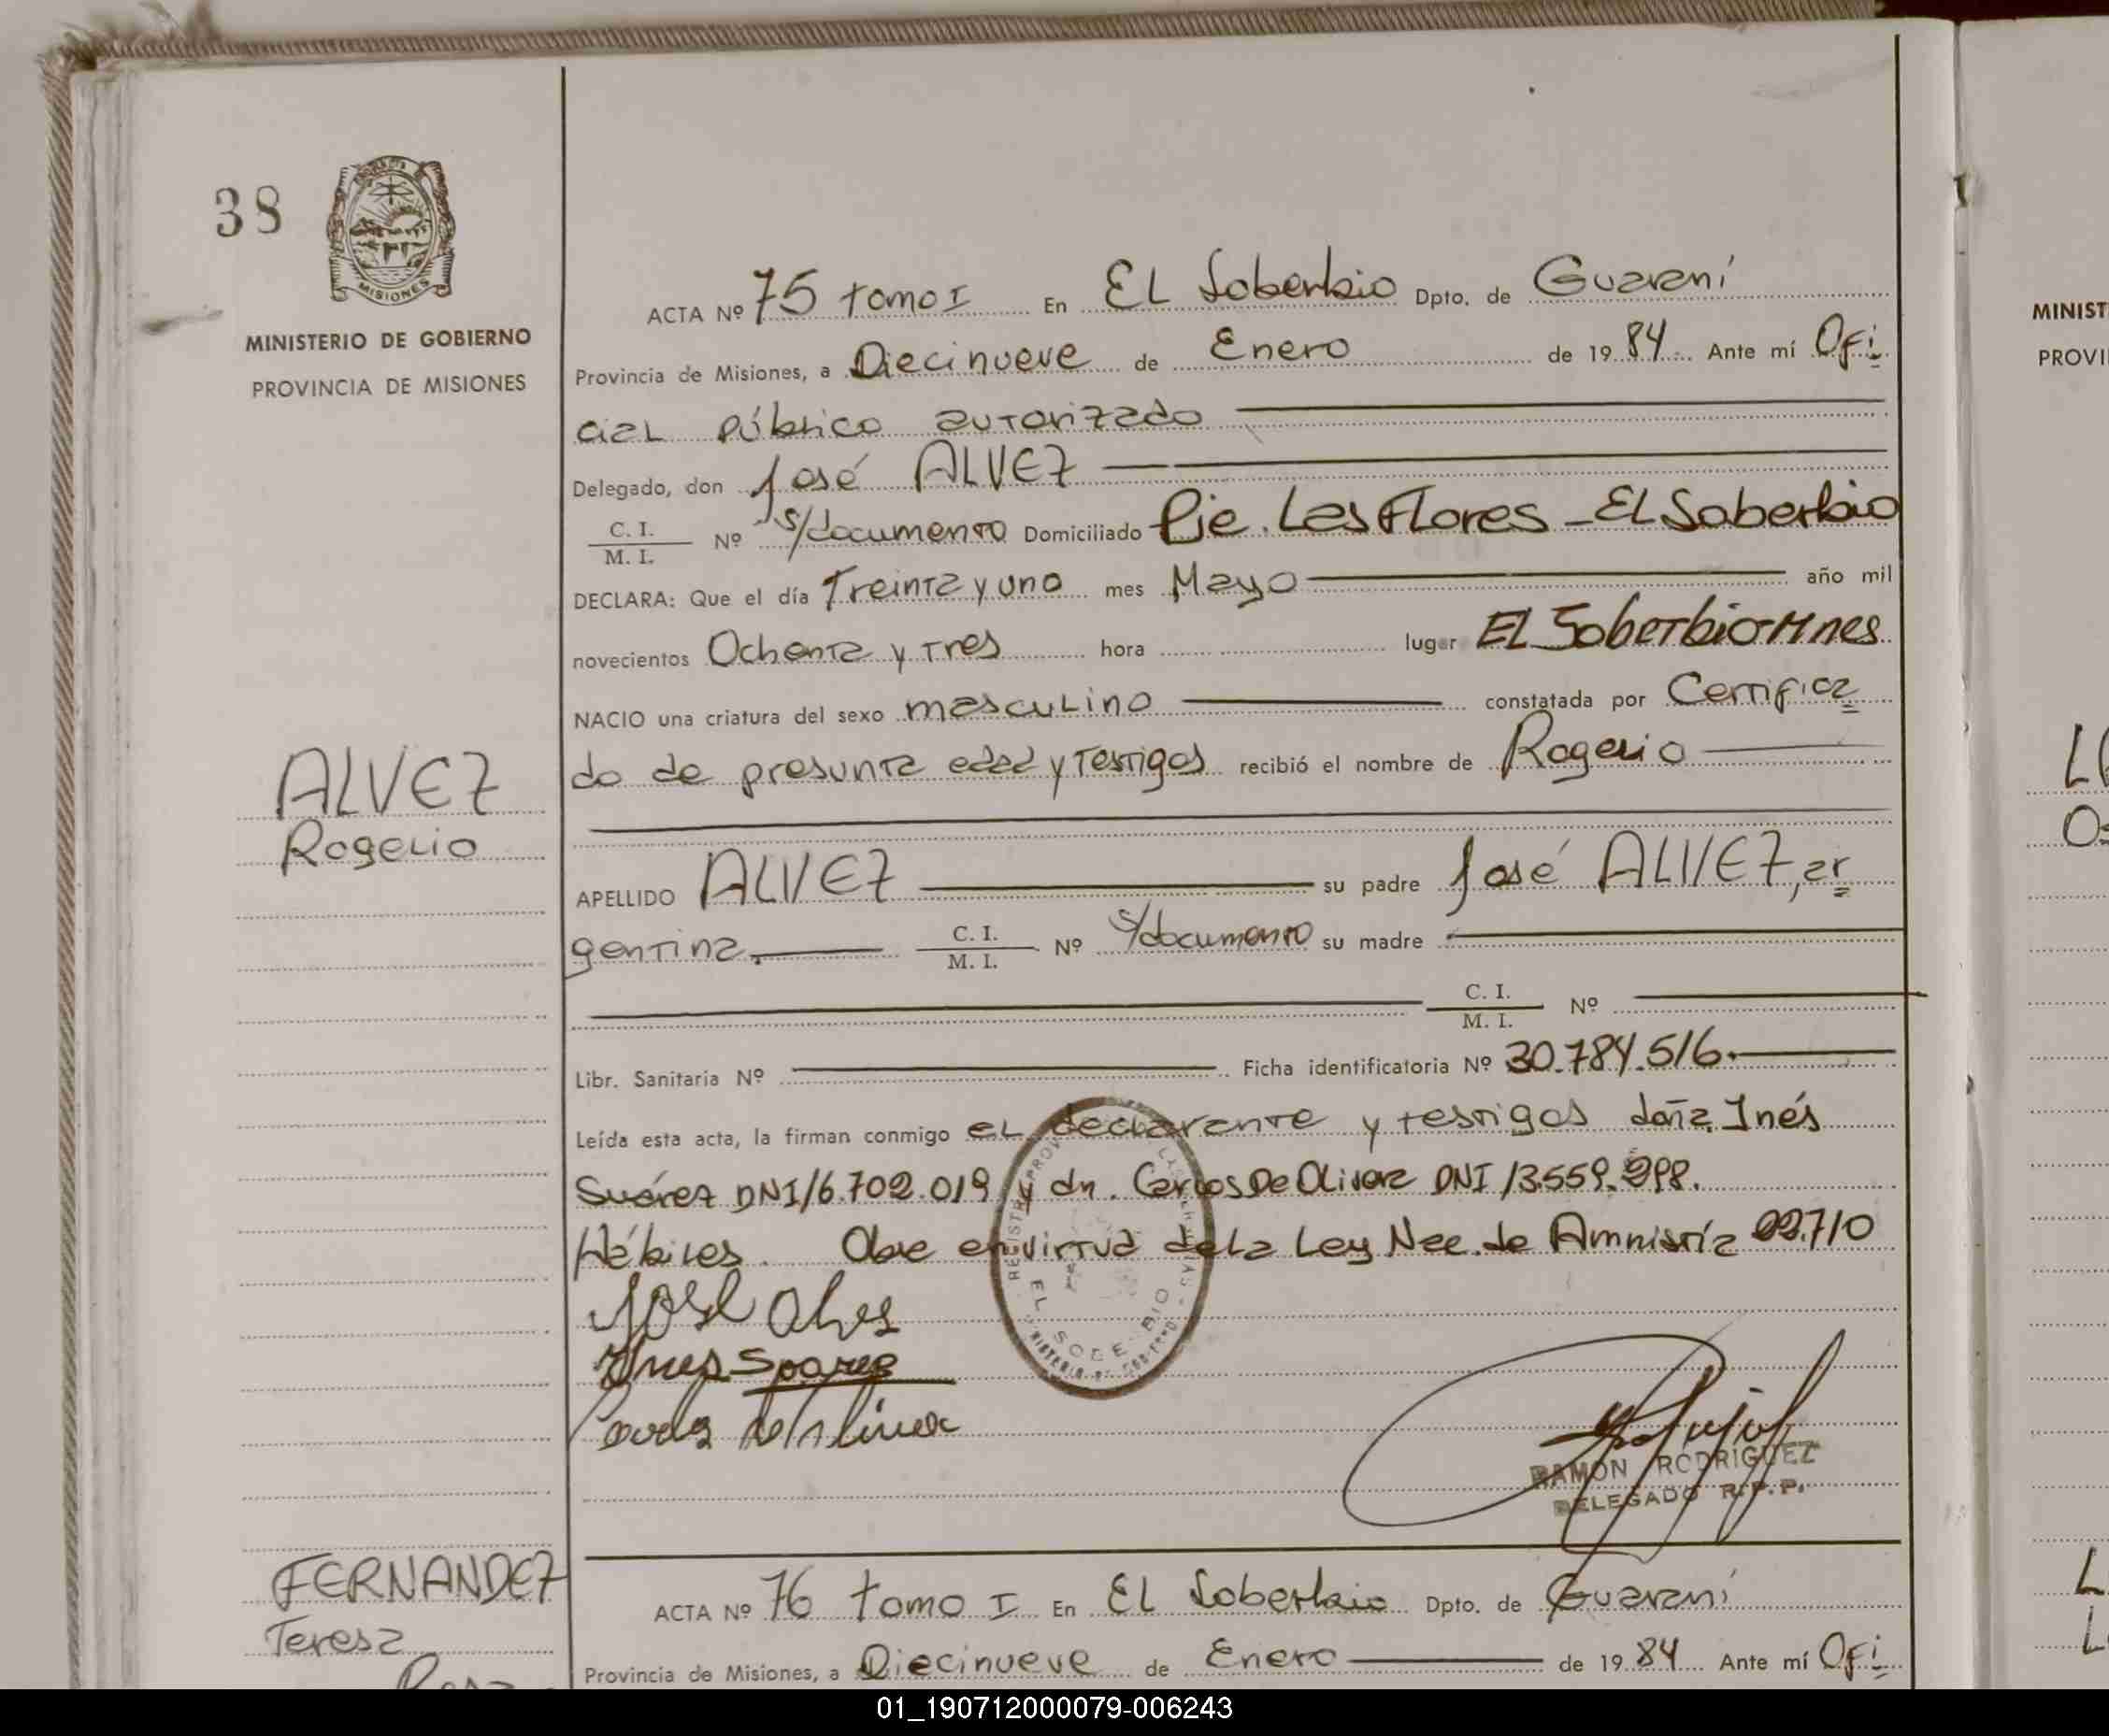 38
MISIONES
MINISTERIO DE GOBIERNO
PROVINCIA DE MISIONES
ACTA Nº 75 tomo I En EL Soberbio Dpto. de Guaraní
Provincia de Misiones, a Diecinueve de Enero de 1984 Ante mí Ofi
cial público autorizado
Delegado, don José ALVEZ
C. I. / M. I. Nº s/documento Domiciliado Pje. Las Flores - EL Soberbio
DECLARA: Que el día Treinta y uno mes Mayo año mil
novecientos Ochenta y Tres hora lugar EL Soberbio Mnes
NACIO una criatura del sexo masculino constatada por Certifica
do de presunta edad y testigos recibió el nombre de Rogerio
ALVEZ
Rogelio
APELLIDO ALVEZ su padre José ALVEZ, ar
gentina. C. I. / M. I. Nº s/documento su madre
C. I. / M. I. Nº
Libr. Sanitaria Nº Ficha identificatoria Nº 30.784.516.
Leída esta acta, la firman conmigo el declarante y testigos doña Inés
Suárez DNI/6.702.019 y dn. Carlos De Olivera DNI 13.559.998.
Hábiles. Obre en virtud de la Ley Nac. de Amnistía 22.710
José Alves
Ines Soares
RAMON RODRIGUEZ
DELEGADO R.P.P.
FERNANDEZ
Teresa
Rosa
ACTA Nº 76 tomo I En EL Soberbio Dpto. de Guaraní
Provincia de Misiones, a Diecinueve de Enero de 1984 Ante mí Ofi
MINIST
PROVI
01_190712000079-006243